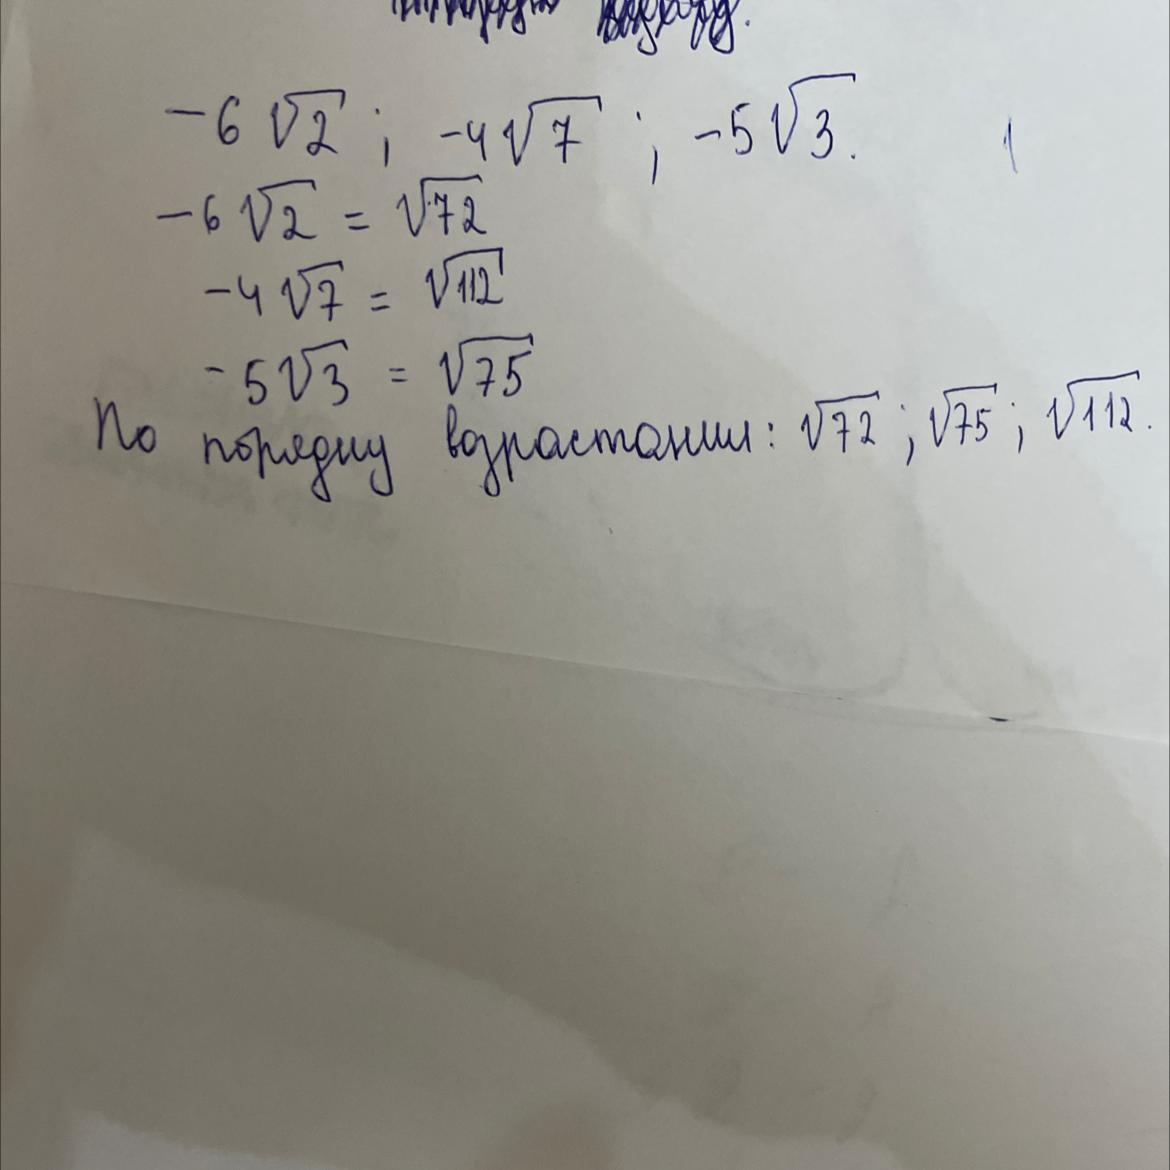 -6√2 ; -4√7 ; -5√3.
-6√2 = √72
-4√7 = √112
-5√3 = √75
По порядку возрастания: √72 ; √75 ; √112.